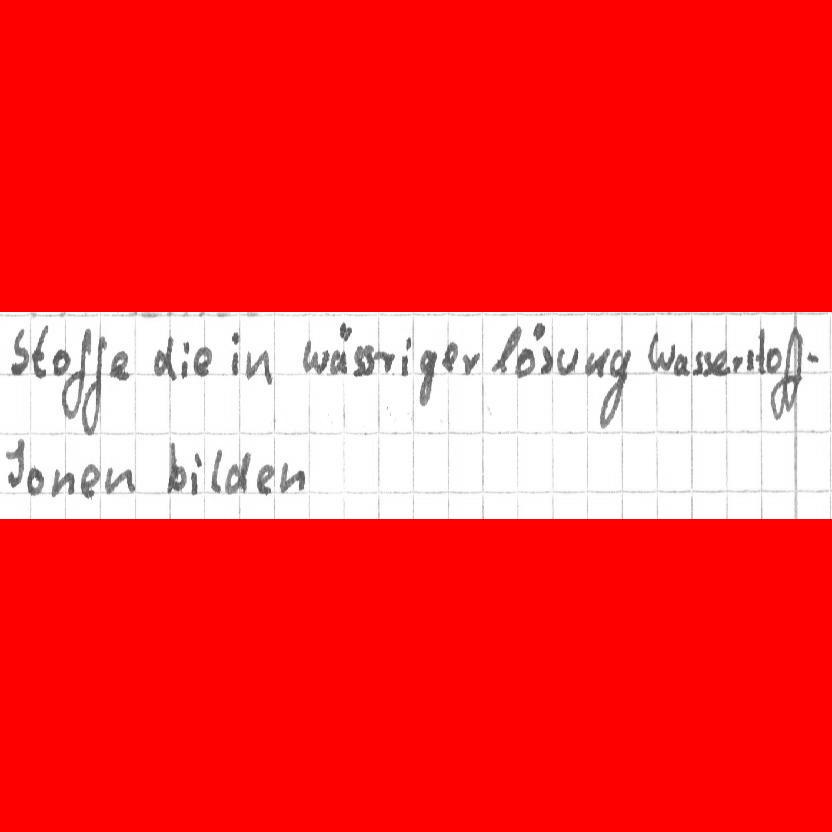 Stoffe die in wässriger lösung Wasserstoff-
Ionen bilden